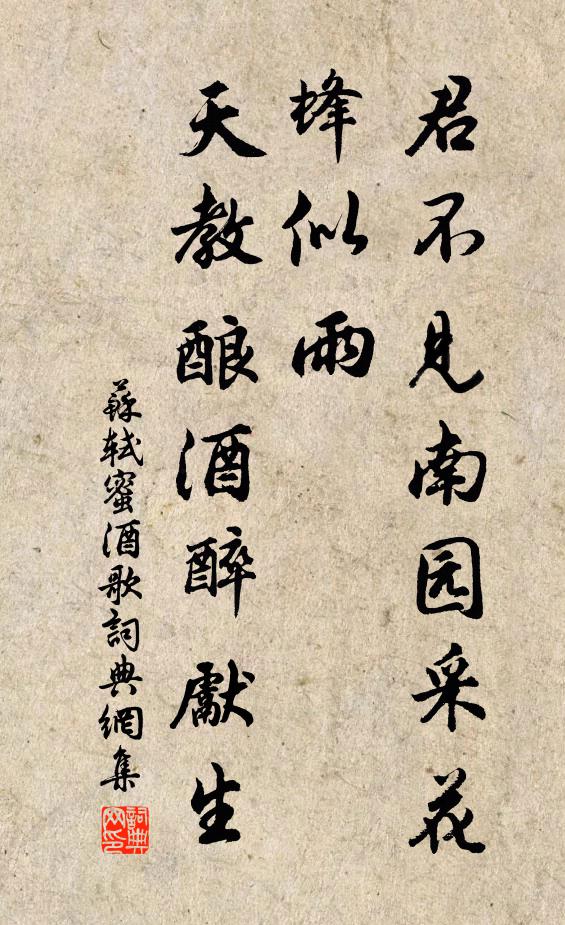 君不见南园采花
蜂似雨
天教酿酒醉獻生
蘇軾蜜酒歌詞典網集
詞典
网印